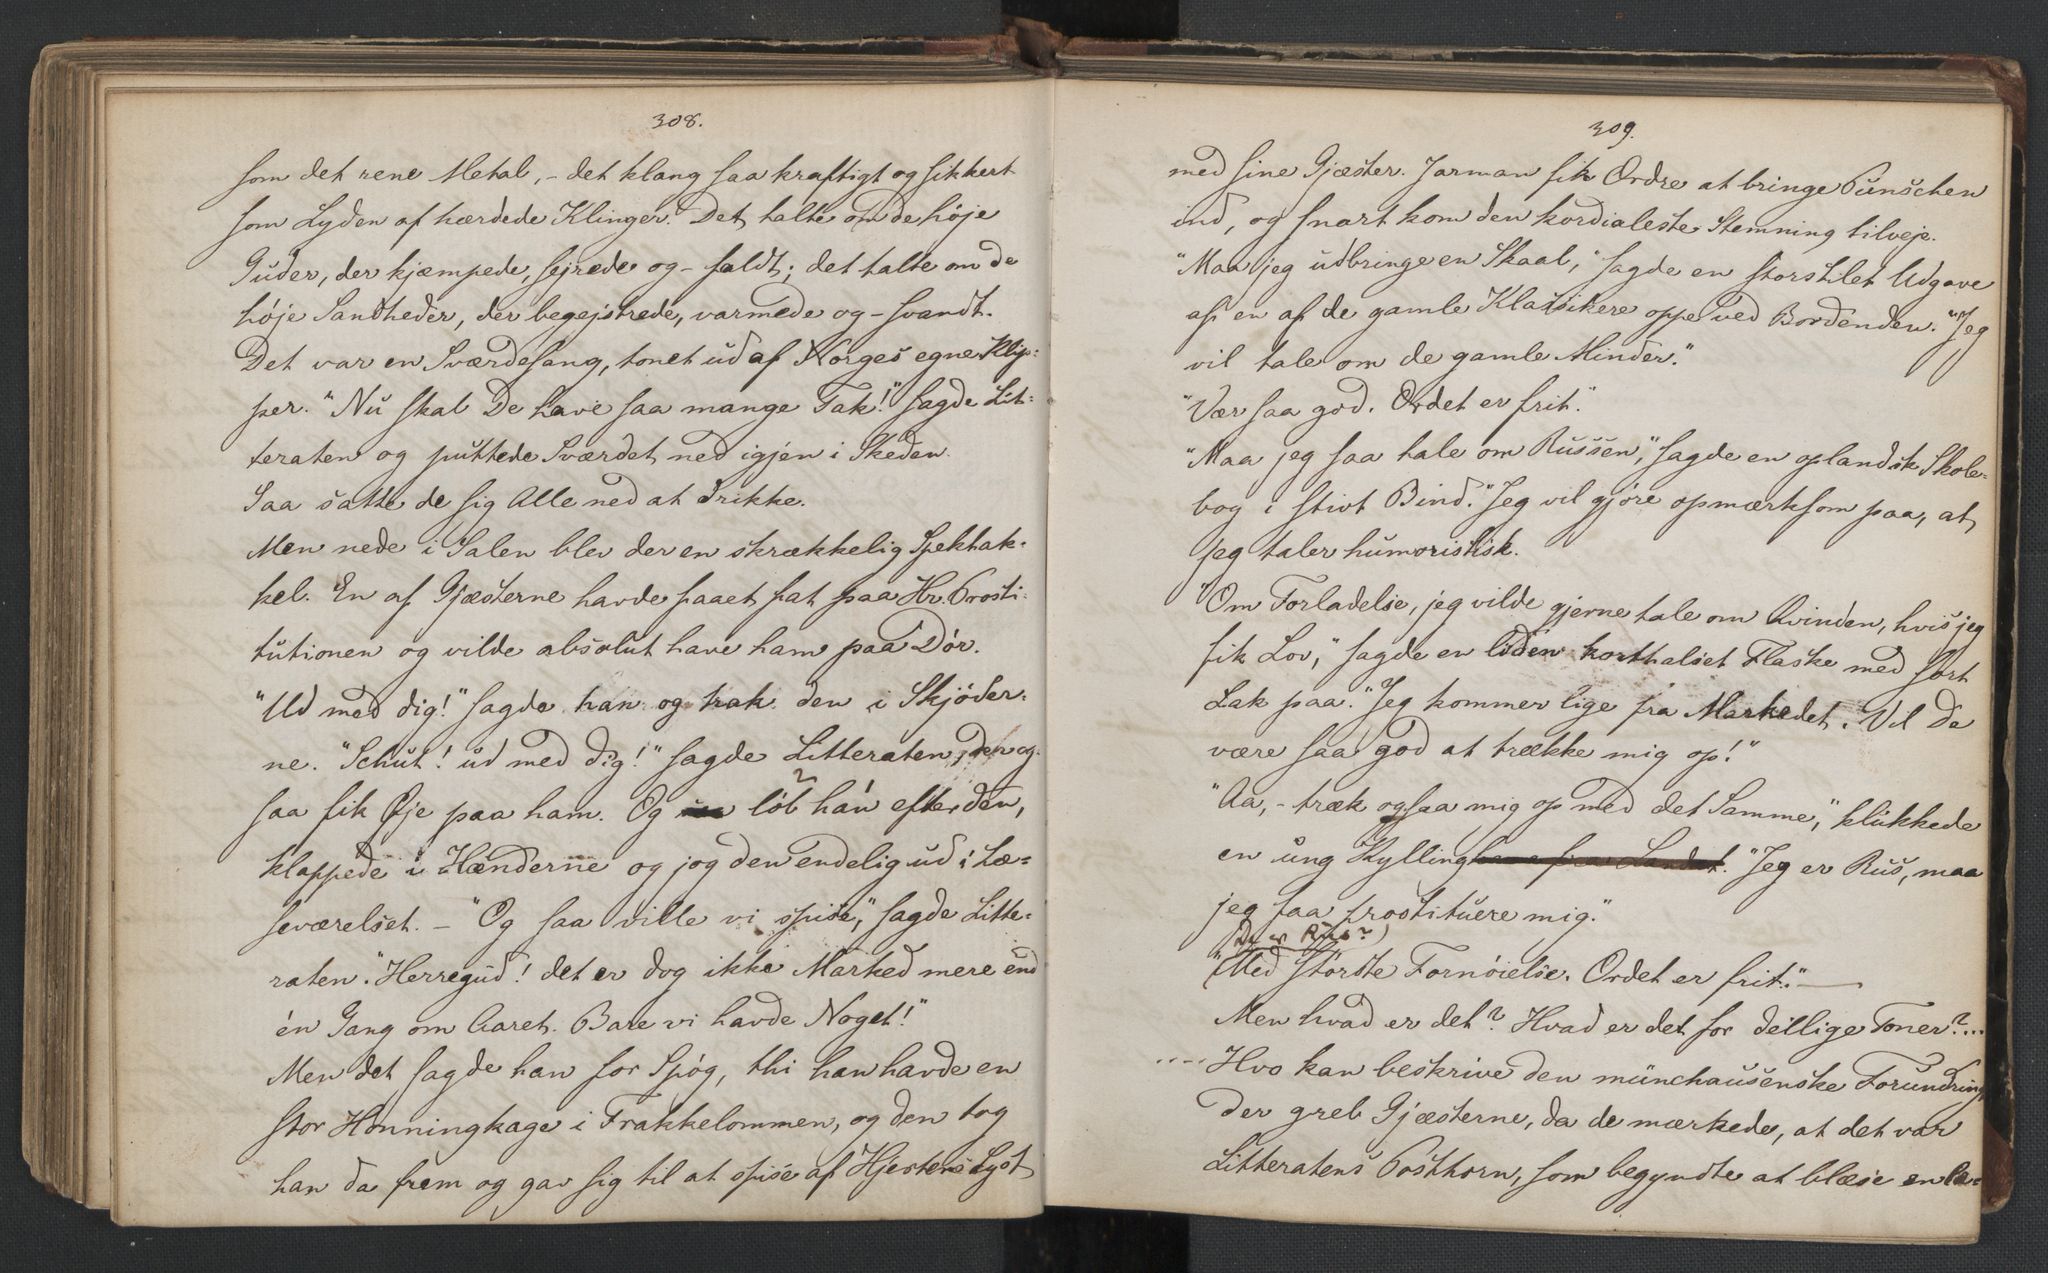 308.
som det rene Metal, - det klang saa kraftigt og sikkert
som Lyden af hærdede Klinger. Det talte om de høje
Guder, der kjæmpede, sejrede og - faldt; det talte om de
høje Sandheder, der begejstrede, varmede og - svandt.
Det var en Sværdesang, tonet ud af Norges egne Klip-
per. "Nu skal De have saa mange Tak!" sagde Lit-
teraten og puttede Sværdet ned igjen i Skeden.
Saa satte de sig Alle ned at drikke.
Men nede i Salen blev der en skrækkelig Spektak-
kel. En af Gjæsterne havde faaet fat paa Hr. Prosti-
tutionen og vilde absolut have ham paa Dør.
"Ud med dig!" sagde han og trak den i Skjøder-
ne. "Schut! ud med dig!" sagde Litteraten, den og-
saa fik Øje paa ham. Og løb han efter den,
klappede i Hænderne og jog den endelig ud i Læ-
seværelset. - "Og saa ville vi spise," sagde Litte-
raten. "Herregud! det er dog ikke Marked mere end
én Gang om Aaret. Bare vi havde Noget!"
Men det sagde han for Spøg, thi han havde en
stor Honningkage i Frakkelommen, og den tog
han da frem og gav sig til at spise af Hjertens Lyst
309.
med sine Gjæster. Jarman fik Ordre at bringe Punschen
ind, og snart kom den kordialeste Stemning tilveje.
"Maa jeg udbringe en Skaal," sagde en storstilet Udgave
af en af de gamle Klassikere oppe ved Bordenden. "Jeg
vil tale om de gamle Minder."
"Vær saa god. Ordet er frit."
"Maa jeg saa tale om Russen," sagde en oplandsk Skole-
bog i stivt Bind. "Jeg vil gjøre opmærksom paa, at
jeg taler humoristisk.
"Om Forladelse, jeg vilde gjerne tale om Kvinden, hvis jeg
fik Lov," sagde en liden korthalset Flaske med sort
Lak paa. "Jeg kommer lige fra Markedet. Vil De
være saa god at trække mig op!"
"Aa, - træk ogsaa mig op med det Samme," klukkede
en ung Kylling fra Landet. "Jeg er Rus, maa
jeg faa prostituere mig."
(De er Rus?)
"Med største Fornøielse. Ordet er frit." —
Men hvad er det? Hvad er det for deilige Toner? ...
.... Hvo kan beskrive den münchausenske Forundring,
der greb Gjæsterne, da de mærkede, at det var
Litteratens Posthorn, som begyndte at blæse en læ-